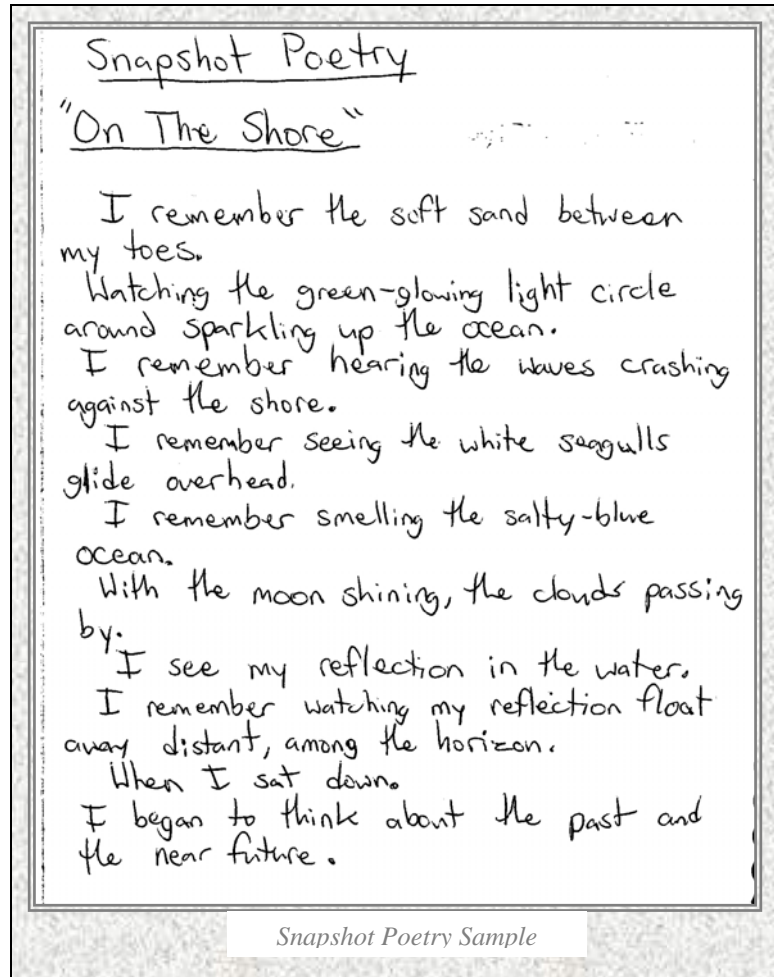 Snapshot Poetry
"On The Shore"
I remember the soft sand between
my toes.
Watching the green-glowing light circle
around sparkling up the ocean.
I remember hearing the waves crashing
against the shore.
I remember seeing the white seagulls
glide overhead.
I remember smelling the salty-blue
ocean.
With the moon shining, the clouds passing
by.
I see my reflection in the water.
I remember watching my reflection float
away distant, among the horizon.
When I sat down.
I began to think about the past and
the near future.
Snapshot Poetry Sample